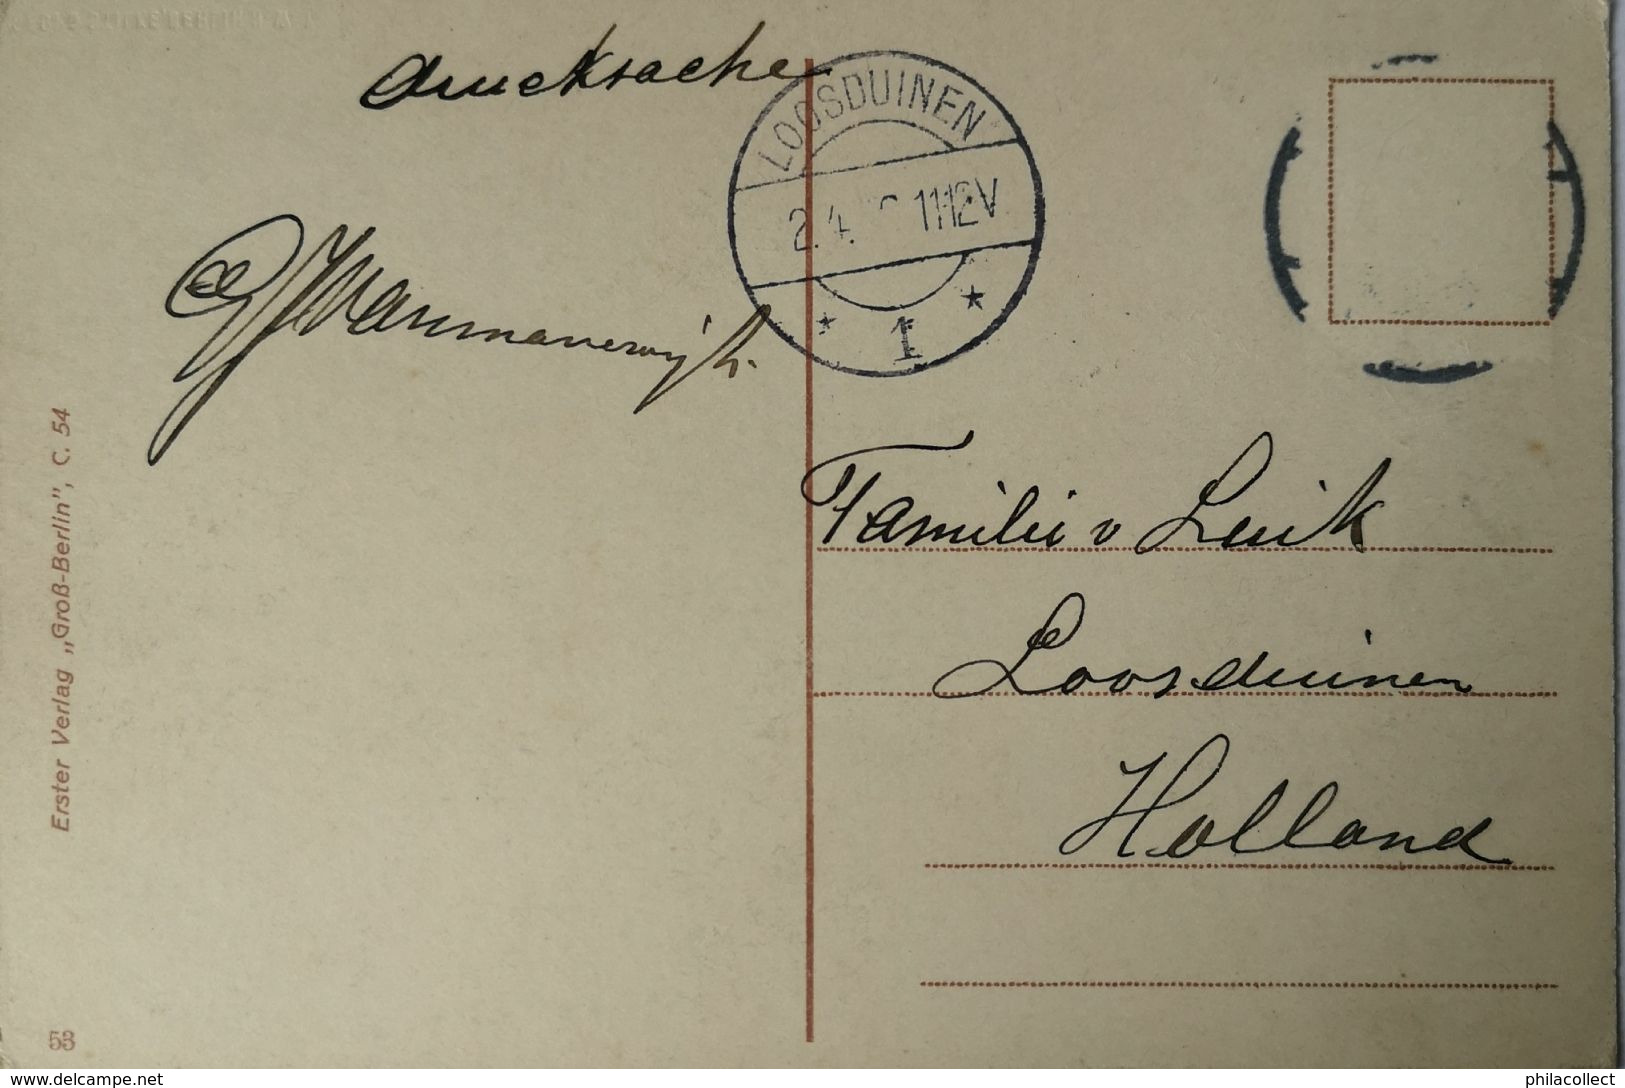 Drucksache
LOOSDUINEN
2.4. 11-12V
* 1 *
Familie v Luik
Loosduinen
Holland
Erster Verlag „Groß-Berlin", C. 54
53
delcampe.net
philacollect